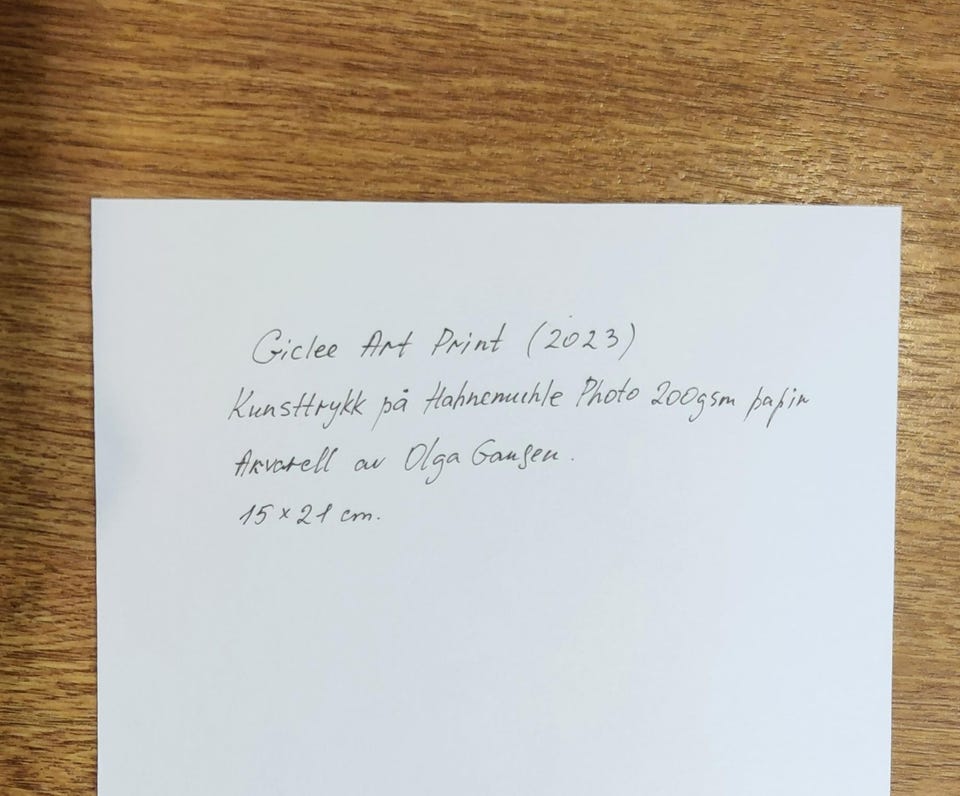 Giclee Art Print (2023)
Kunsttrykk på Hahnemuhle Photo 200gsm papir
Akvarell av Olga Gansen.
15 × 21 cm.